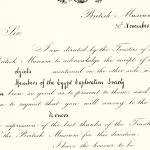 British Museum
November
Sir
I am directed by the Trustees of
British Museum to acknowledge the receipt of
objects mentioned on the other side, which
Members of the Egypt Exploration Society
been so good as to present to them; and
to request that you will convey to the
Donors
expression of the best thanks of the Trustees
the British Museum for this donation
I have the honour to be